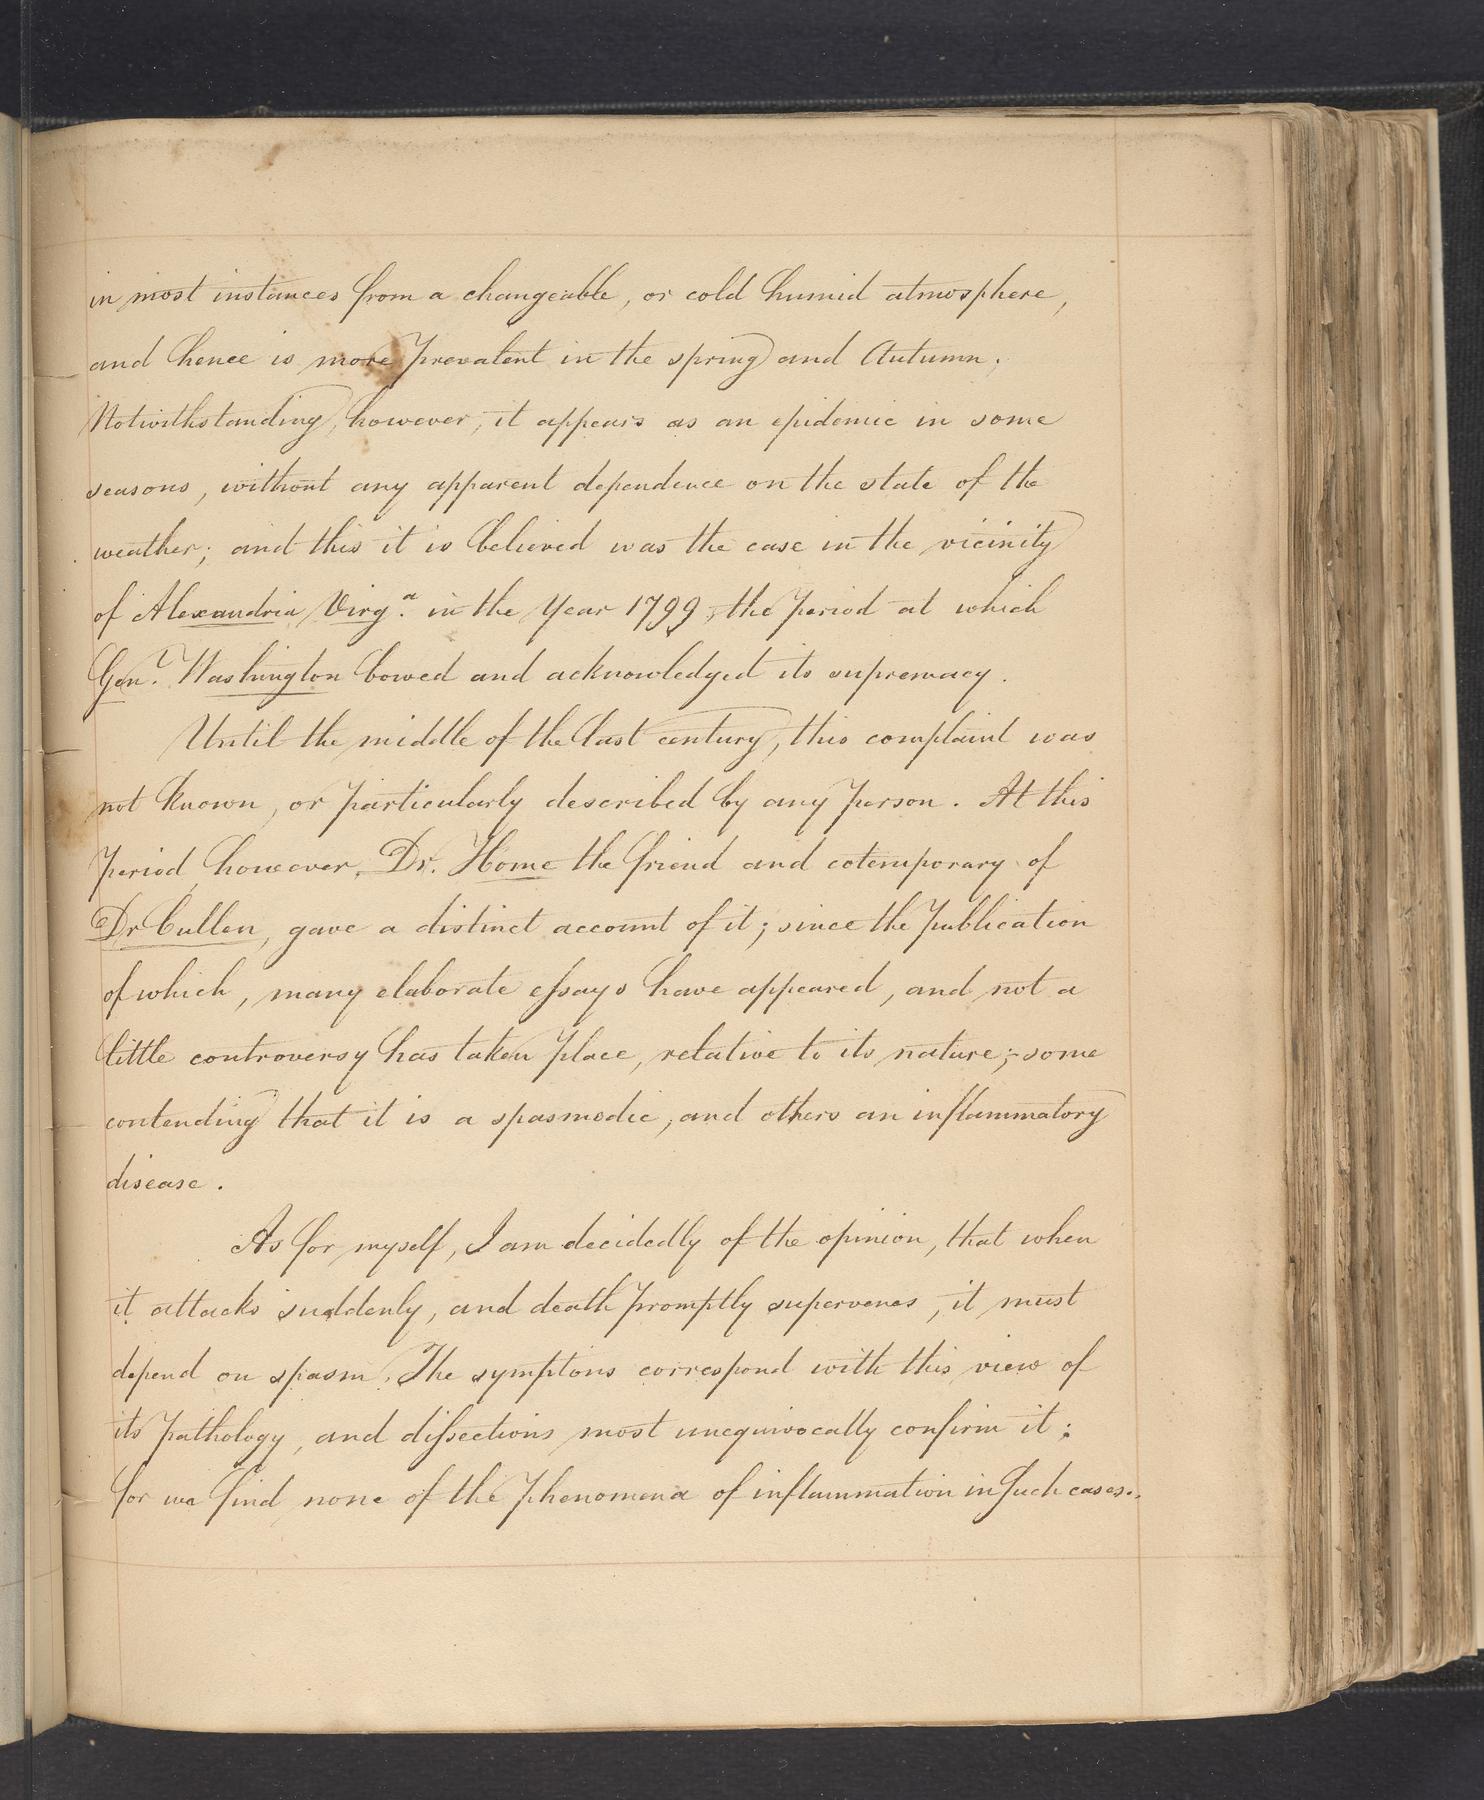 in most instances from a changeable, or cold humid atmosphere,
and hence is more prevalent in the spring and Autumn.
Notwithstanding, however, it appears as an epidemic in some
seasons, without any apparent dependence on the state of the
weather; and this it is believed was the case in the vicinity
of Alexandria Virg.ᵃ in the Year 1799, the period at which
Gen.ˡ Washington bowed and acknowledged its supremacy.
Until the middle of the last century, this complaint was
not known, or particularly described by any person. At this
period, however, Dr. Home the friend and cotemporary of
Dr Cullen, gave a distinct account of it; since the publication
of which, many elaborate eſsays have appeared, and not a
little controversy has taken place, relative to its nature;-some
contending that it is a spasmodic, and others an inflammatory
disease.
As for myself, I am decidedly of the opinion, that when
it attacks suddenly, and death promptly supervenes, it must
depend on spasm. The symptons correspond with this view of
its pathology, and diſsections most unequivocally confirm it;
for we find none of the phenomena of inflammation in such cases.